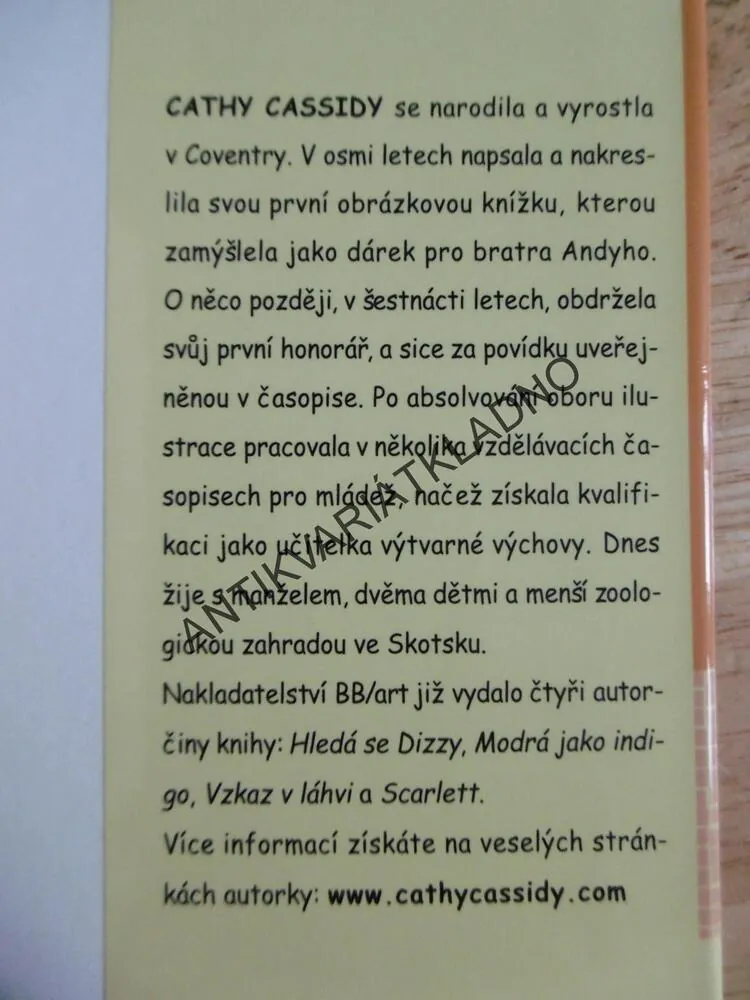 CATHY CASSIDY se narodila a vyrostla
v Coventry. V osmi letech napsala a nakres-
lila svou první obrázkovou knížku, kterou
zamýšlela jako dárek pro bratra Andyho.
O něco později, v šestnácti letech, obdržela
svůj první honorář, a sice za povídku uveřej-
něnou v časopise. Po absolvování oboru ilu-
strace pracovala v několika vzdělávacích ča-
sopisech pro mládež, načež získala kvalifi-
kaci jako učitelka výtvarné výchovy. Dnes
žije s manželem, dvěma dětmi a menší zoolo-
gickou zahradou ve Skotsku.
Nakladatelství BB/art již vydalo čtyři autor-
činy knihy: Hledá se Dizzy, Modrá jako indi-
go, Vzkaz v láhvi a Scarlett.
Více informací získáte na veselých strán-
kách autorky: www.cathycassidy.com
ANTIKVARIÁTKLADNO